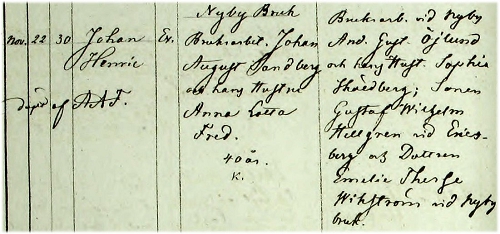 Nyby Bruk
Nov. 22 30 Johan Henric
Ex.
döpt af A.A.F.
Bruksarbet. Johan
August Sandberg
och hans Hustru
Anna Lotta
Fred.
40 år.
K.
Bruksarb. vid Nyby
And. Gust. Öjlund
och hans Hust. Sophia
Skäedberg; Sonen
Gustaf Wilhelm
Hellgren vid Erics-
berg och Dottren
Emelie Therese
Wikström vid Nyby
bruk.